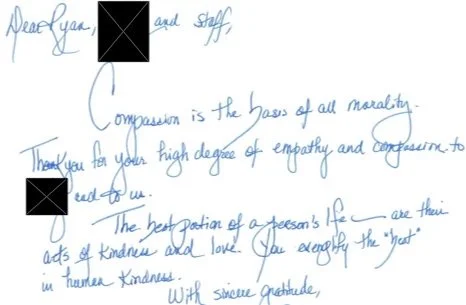 Dear Ryan, and staff,
Compassion is the basis of all morality.
Thank you for your high degree of empathy and compassion to
and to us.
The best portion of a person's life — are their
acts of kindness and love. You exemplify the "best"
in human kindness.
With sincere gratitude,